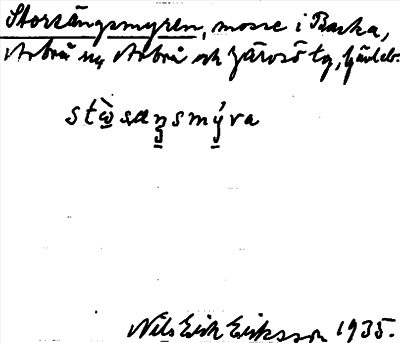 Storsängsmyren, mosse i Backa,
Arbrå sn, Arbrå och Järvsö tg, Gävleb.
stὼsaŋsmýra
Nils Erik Eriksson 1935.